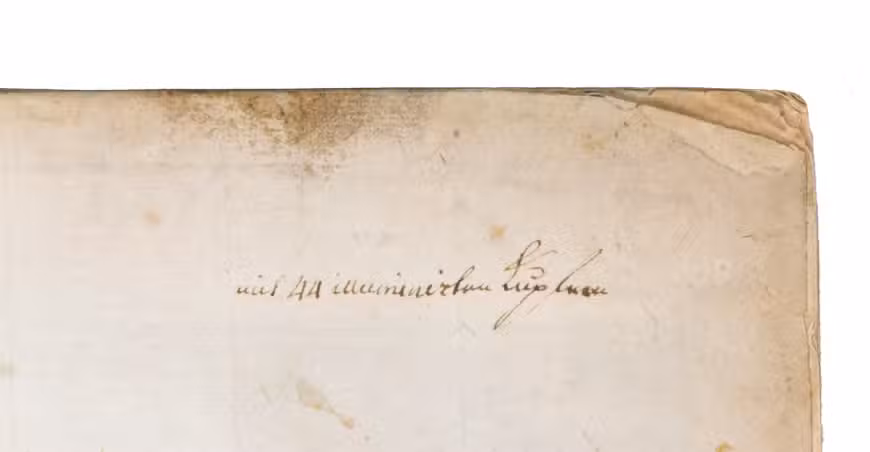 mit 44 illuminirten Kupfern